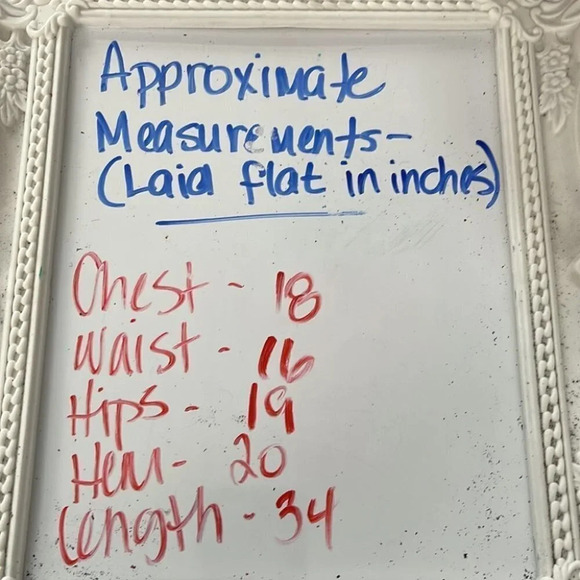 Approximate
Measurements-
(Laid flat in inches)
Chest - 18
Waist - 16
Hips - 19
Hem - 20
Length - 34